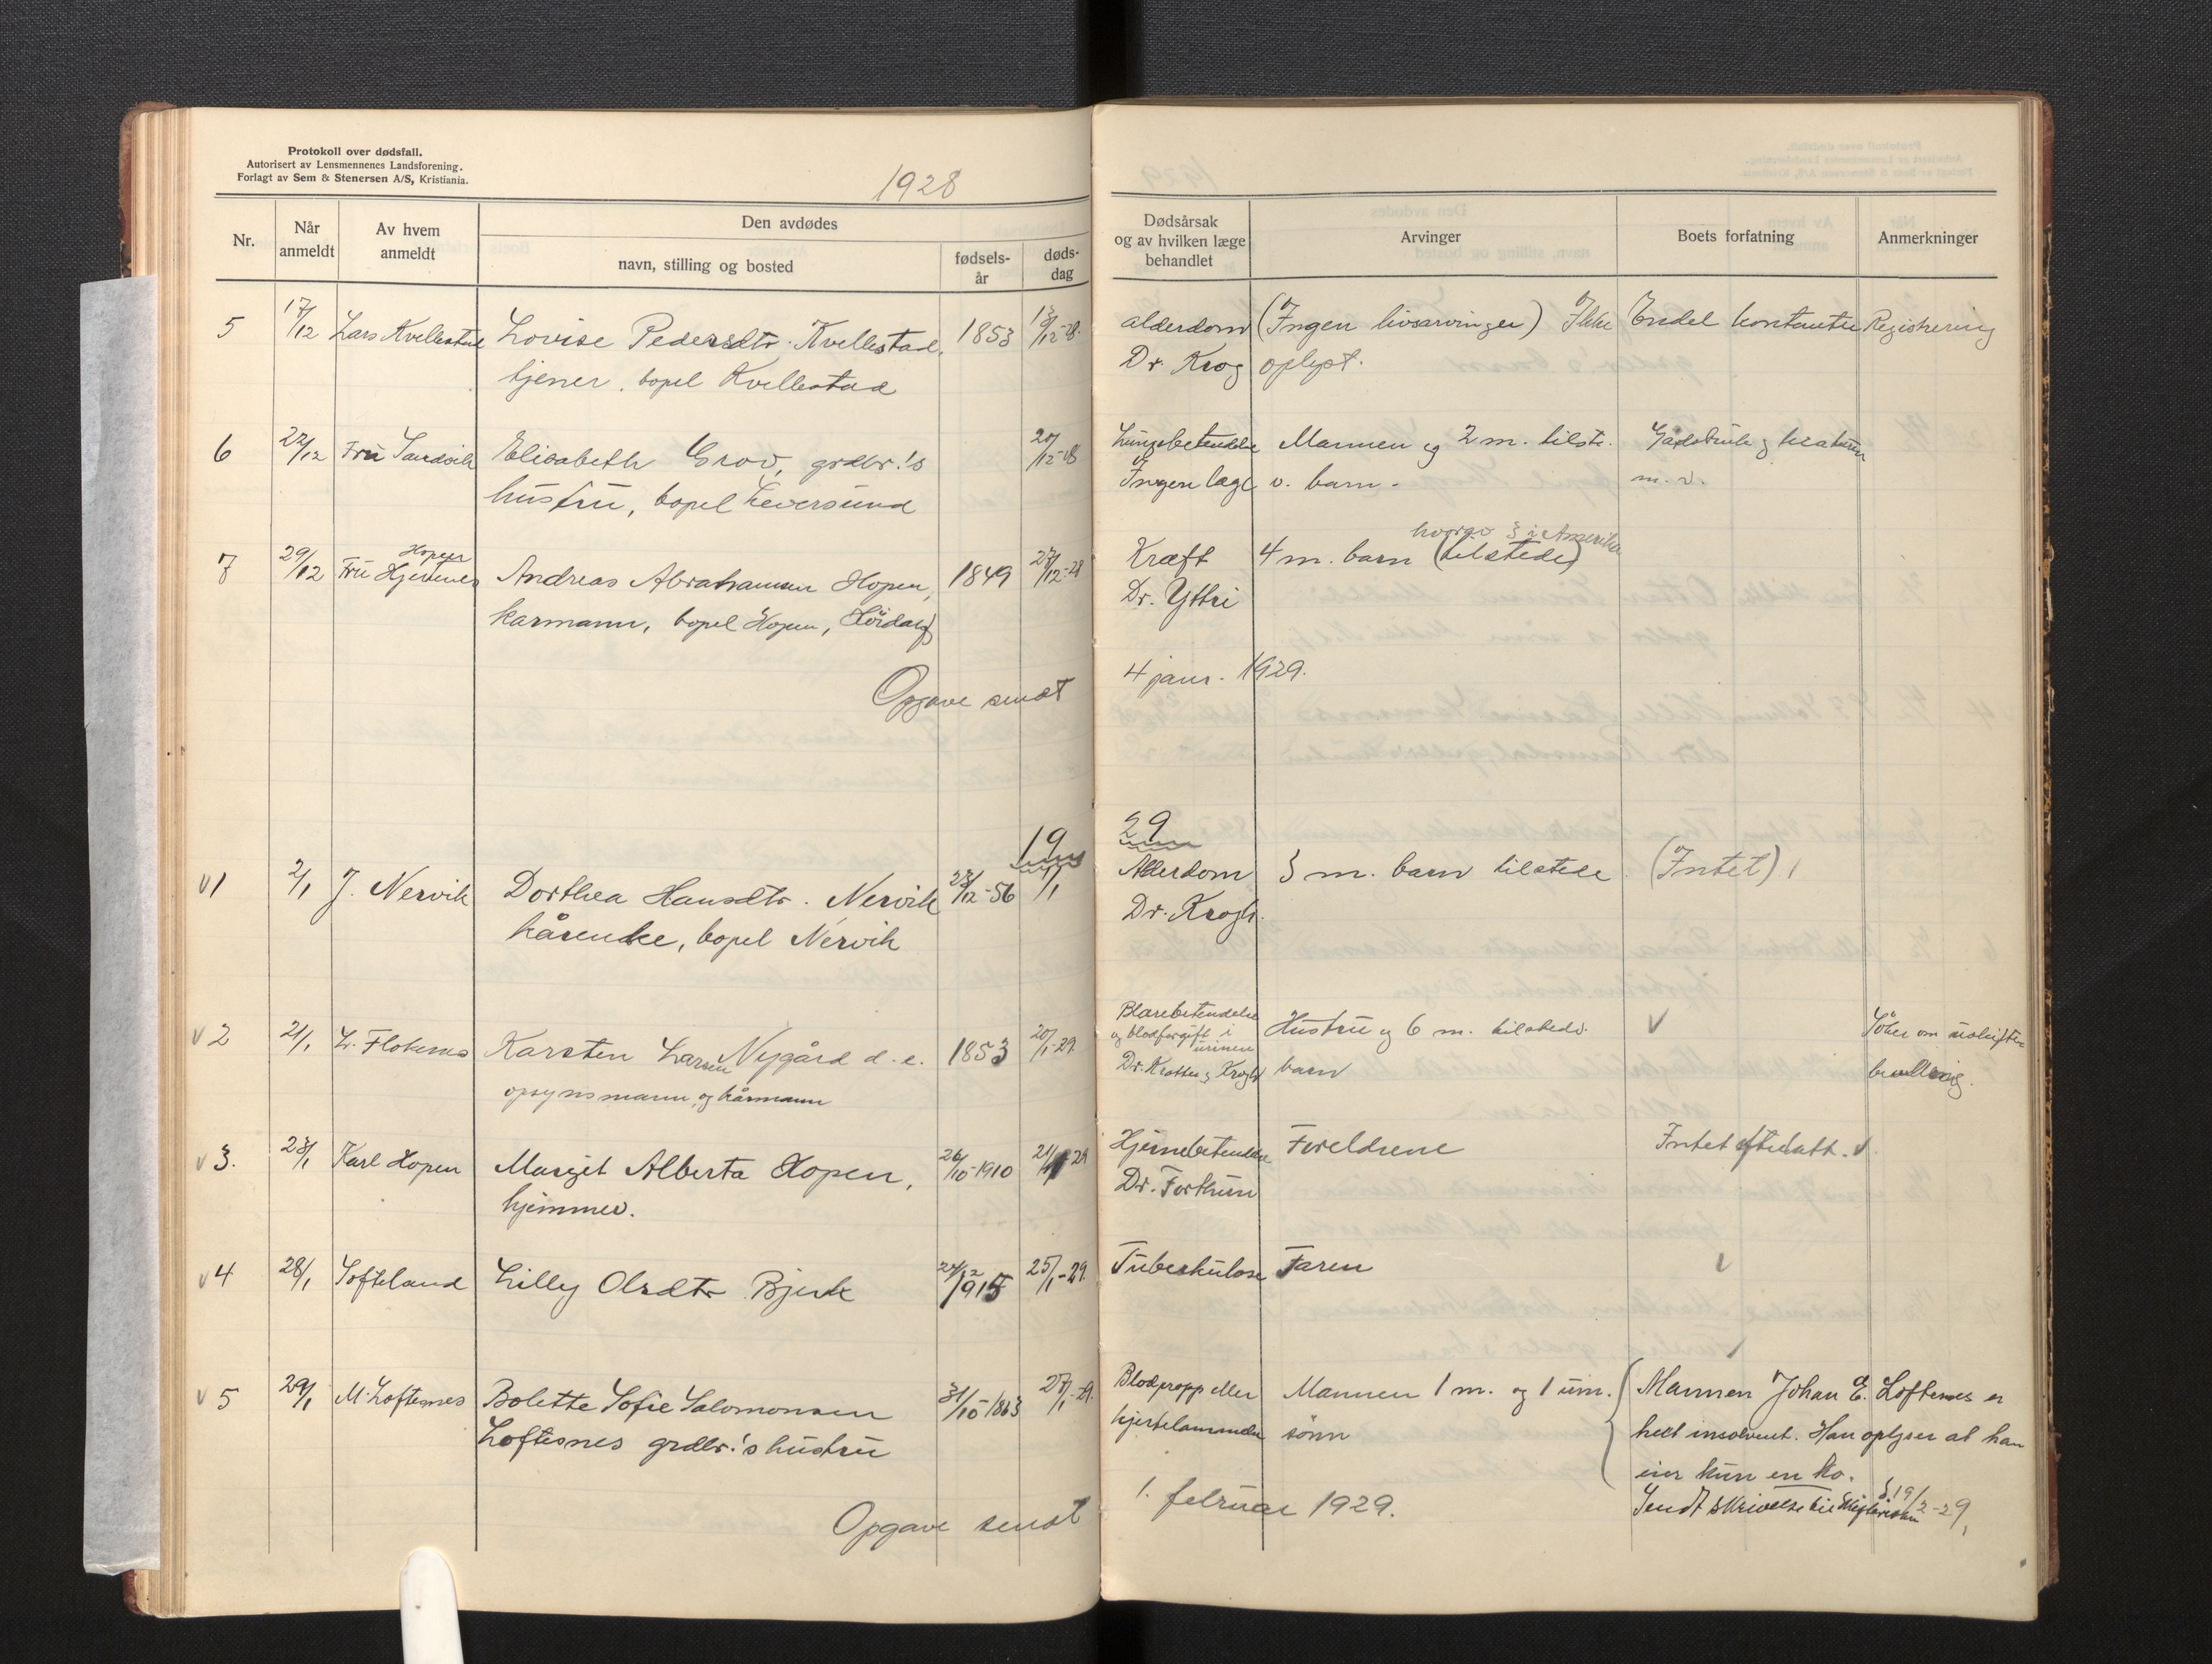 Protokoll over dødsfall.
Autorisert av Lensmennenes Landsforening.
Forlagt av Sem & Stenersen A/S, Kristiania.
1928
Nr.
Når anmeldt
Av hvem anmeldt
Den avdødes
navn, stilling og bosted
fødsels-år
døds-dag
Dødsårsak og av hvilken læge behandlet
Arvinger
Boets forfatning
Anmerkninger
5 17/12 Lars Kvellestad Lovise Pedersdtr. Kvellestad, 1853 13/12-28. alderdom (Ingen livsarvinger) Ikke Endel kontanter Registrering
tjener, bopel Kvellestad Dr. Krog oplyst.
6 22/12 Fru Sandvik Elisabeth Grov, grdbr.'s 20/12-28 Lungebetendelse Mannen og 2 m. tilst. Gardsbruk og kreaturer
hustru, bopel Leversund Ingen læge v. barn. m. v.
Hopen hvorav 3 i Amerika
7 29/12 Fru Hjertenes Andreas Abrahamsen Hopen, 1849 27/12-28 Kræft 4 m. barn (tilstede)
karmann, bopel Hopen, Dr. Ytri
Opgave sendt 4 janr. 1929.
1929
v1 2/1 J. Nervik Dorthea Hansdtr. Nervik 23/12-56 1/1 Alderdom 3 m. barn tilstede (Intet)
kårenke, bopel Nervik Dr. Krogh.
v 2 21/1 L. Flokenes Karsten Larsen Nygård d. e. 1853 20/1-29. Blærebetendelse og blodforgift i urinen Hustru og 6 m. tilstedv. v Söker om uskifte-
opsynsmann og kårmann Dr. Krogh barn bevilling.
v 3. 23/1 Karl Hopen Margit Alberta Hopen, 26/10-1910 21/1 29 Hjernebetendelse Foreldrene Intet efterlatt. v
hjemmev. Dr. Forthun
v 4 28/1 Softeland Lilly Olsdtr Bjerk 24/12 1915 25/1-29. Tuberkulose Faren v
v 5 29/1 M. Loftesnes Bolette Sofie Salomonsen 31/10-1863 27/1-29. Blodpropp eller Mannen 1 m. og 1 um. Mannen Johan E. Loftesnes er
Loftesnes grdbr.'s hustru hjertelammelse sönn helt insolvent. Han oplyser at han
eier kun en ko.
Sendt skrivelse til Skifteretten d. 19/2-29,
Opgave sendt 1. februar 1929.